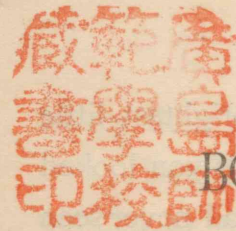 廣島師
範學校
蔵書印
BC